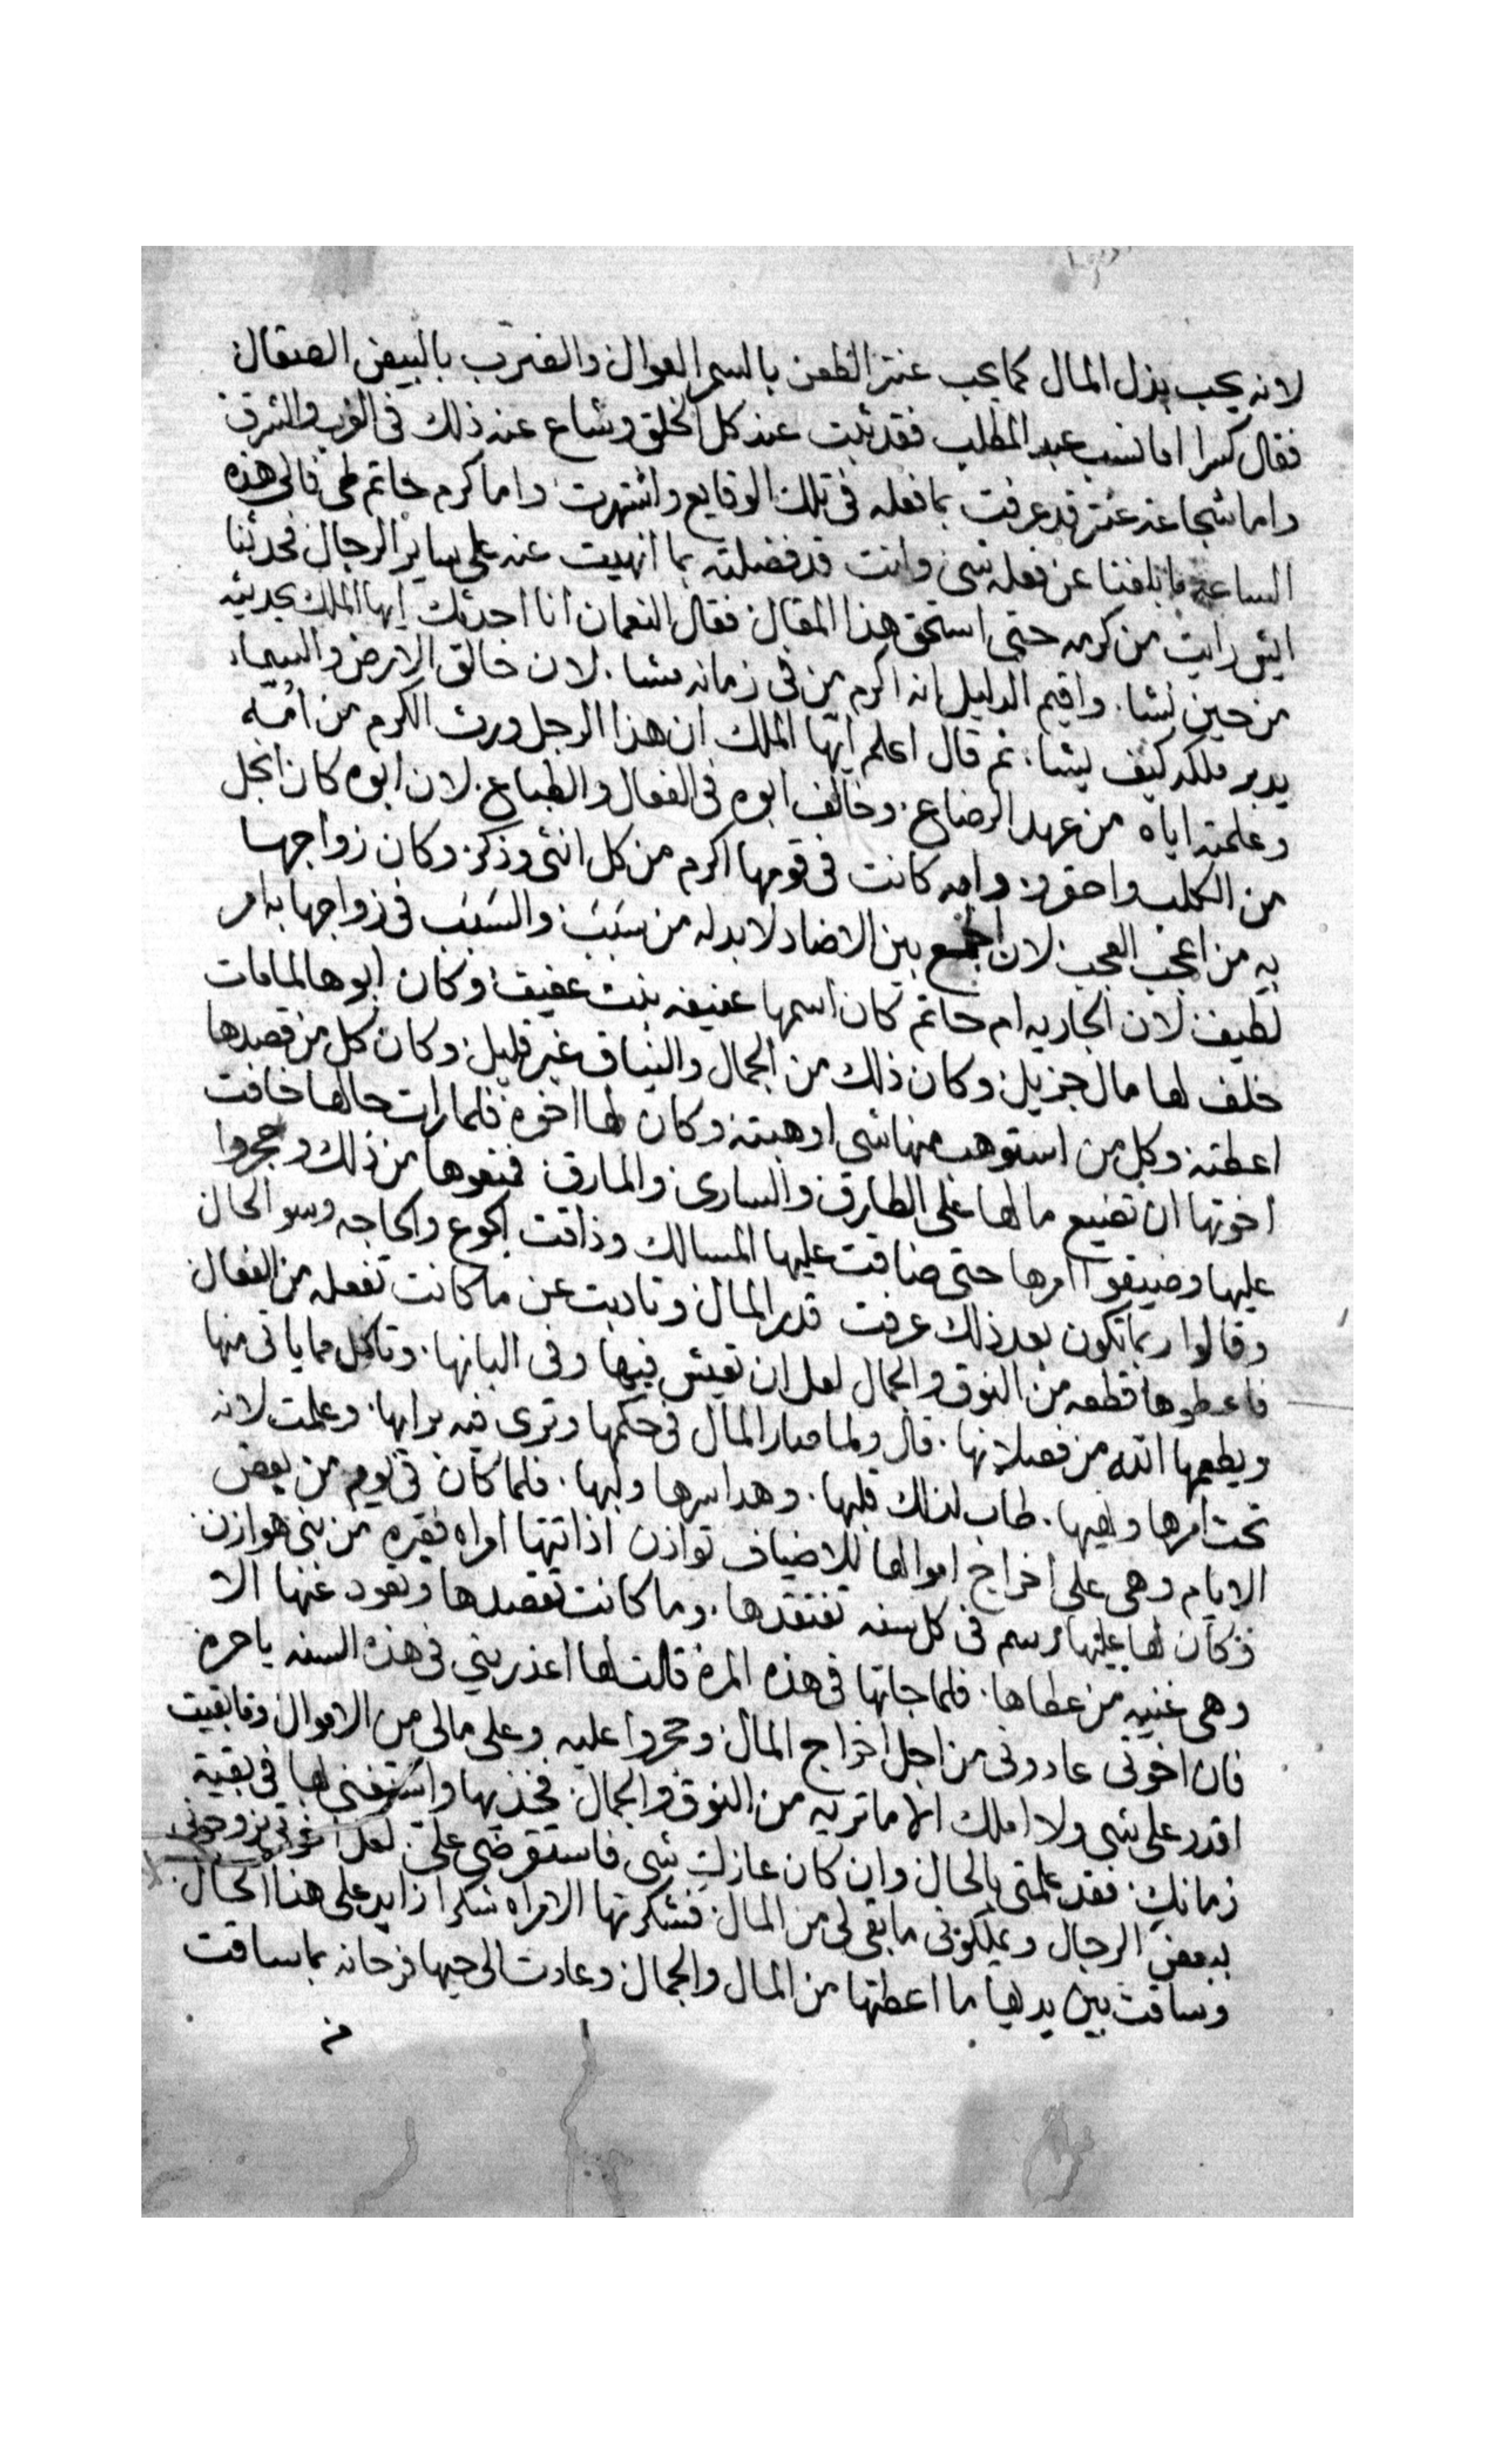 لانه يحب بذل المال كما يحب عنتر الطعن بالسمر العوال والضرب بالبيض الصقال
فقال كسرا اما نسب عبد المطلب فقد ثبت عند كل الخلق وشاع عنه ذلك فى الغرب والشرق
واما شجاعة عنتر قد عرفت بما فعله فى تلك الوقايع واشتهرت واما كرم حاتم طى فالى هذه
الساعه ما بلغنا عن فعله شى وانت قد فضلته بما انهيت عنه على ساير الرجال فحدثنا
ايش رايت من كرمه حتى استحق هذا المقال فقال النعمان انا احدثك ايها الملك بحديثه
من حين نشا. واقيم الدليل انه اكرم من فى زمانه مشا. لان خالق الارض والسماء
يدبر ملكه كيف يشا. ثم قال اعلم ايها الملك ان هذا الرجل ورث الكرم من امه
وعلمته اياه من عهد الرضاع. وخالف ابوه فى الفعال والطباع. لان ابوه كان ابخل
من الكلب واحقر. وامه كانت فى قومها اكرم من كل انثى وذكر. وكان زواجها
به من اعجب العجب. لان الجمع بين الاضاد لا بد له من سبب والسبب فى زواجها به امر
لطيف لان الجاريه ام حاتم كان اسمها عفيفه بنت عفيف وكان ابوها لما مات
خلف لها مال جزيل وكان ذلك من الجمال والنياق غير قليل وكان كل من قصدها
اعطته وكل من استوهب منها شى اوهبته وكان لها اخوة فلما رات حالها خافت
اخوتها ان تضيع مالها على الطارق والسارى والمارق فمنعوها من ذلك وحجروا
عليها وضيقوا امرها حتى ضاقت عليها المسالك وذاقت الجوع والحاجه وسو الحال
وقالوا ربما تكون بعد ذلك عرفت قدر المال وتادبت عن ما كانت تفعله من الفعال
فاعطوها قطعه من النوق والجمال لعل ان تعيش فيها وفى البانها. وتاكل مما ياتى منها
ويطعمها الله من فصلانها. قال ولما صار المال فى حكمها وترى فيه برايها. وعلمت لانه
تحت امرها ونهيها. طاب لذلك قلبها. وهدا سرها ولبها. فلما كان فى يوم من بعض
الايام وهى على اخراج اموالها للاضياف توازن اذ اتتها امراه فقيره من بنى هوازن
وكان لها عليها رسم فى كل سنه تفتقدها. وما كانت تقصدها وتعود عنها الا
وهى غنيه من عطاها. فلما جاتها فى هذه المرة قالت لها اعذرينى فى هذه السنه يا حره
فان اخوتى عادونى من اجل اخراج المال وحجروا عليه وعلى مالى من الاموال وما بقيت
اقدر على شى ولا املك الا ما تريه من النوق والجمال. فخذيها واستغنى بها فى بقية
زمانك. فقد علمتى بالحال وان كان عازك شى فاستقرضى على. لعل اخوتى يزوجونى
ببعض الرجال ويملكونى ما بقى لى من المال. فشكرتها الامراه شكرا زايد على هذا الحال
وساقت بين يديها ما اعطتها من المال والجمال وعادت الى حيها فرحانه بما ساقت
من